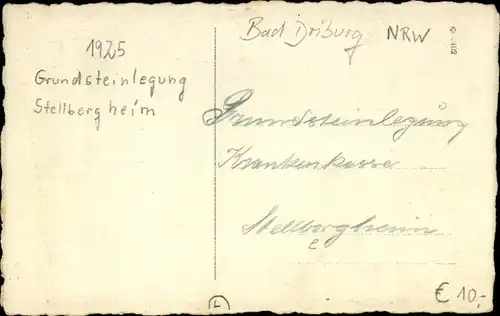 1925
Grundsteinlegung
Stellbergheim
Bad Driburg NRW
Grundsteinlegung
Krankenkasse
Stellborgheim
e
€ 10,-